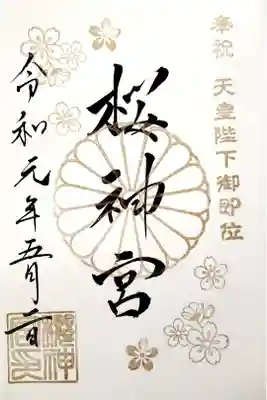 奉祝 天皇陛下御即位
桜神宮
令和元年五月一日
櫻神宮印